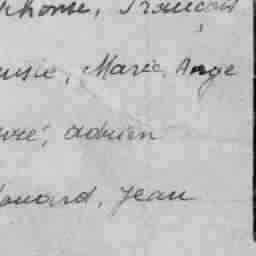 phonse, François
ousie, Marie, Ange
vré, adrien
douard, Jean